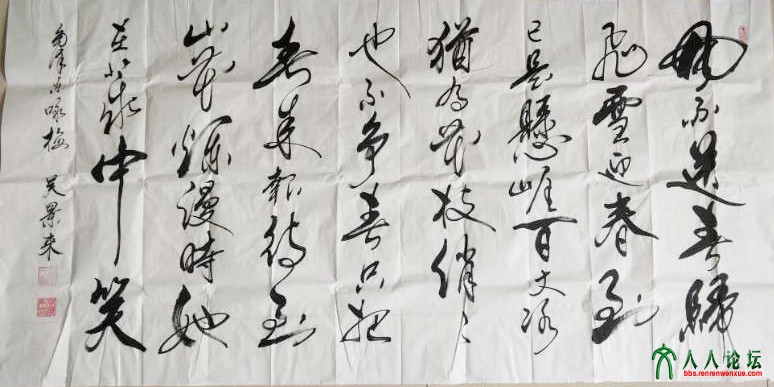 風雨送春歸
飛雪迎春到
已是懸崖百丈冰
猶有花枝俏々
也不争春只把
春来報待到
山花爛漫時她
在叢中笑
咏梅 吴景来
人人论坛
bbs.renrenwenxue.com